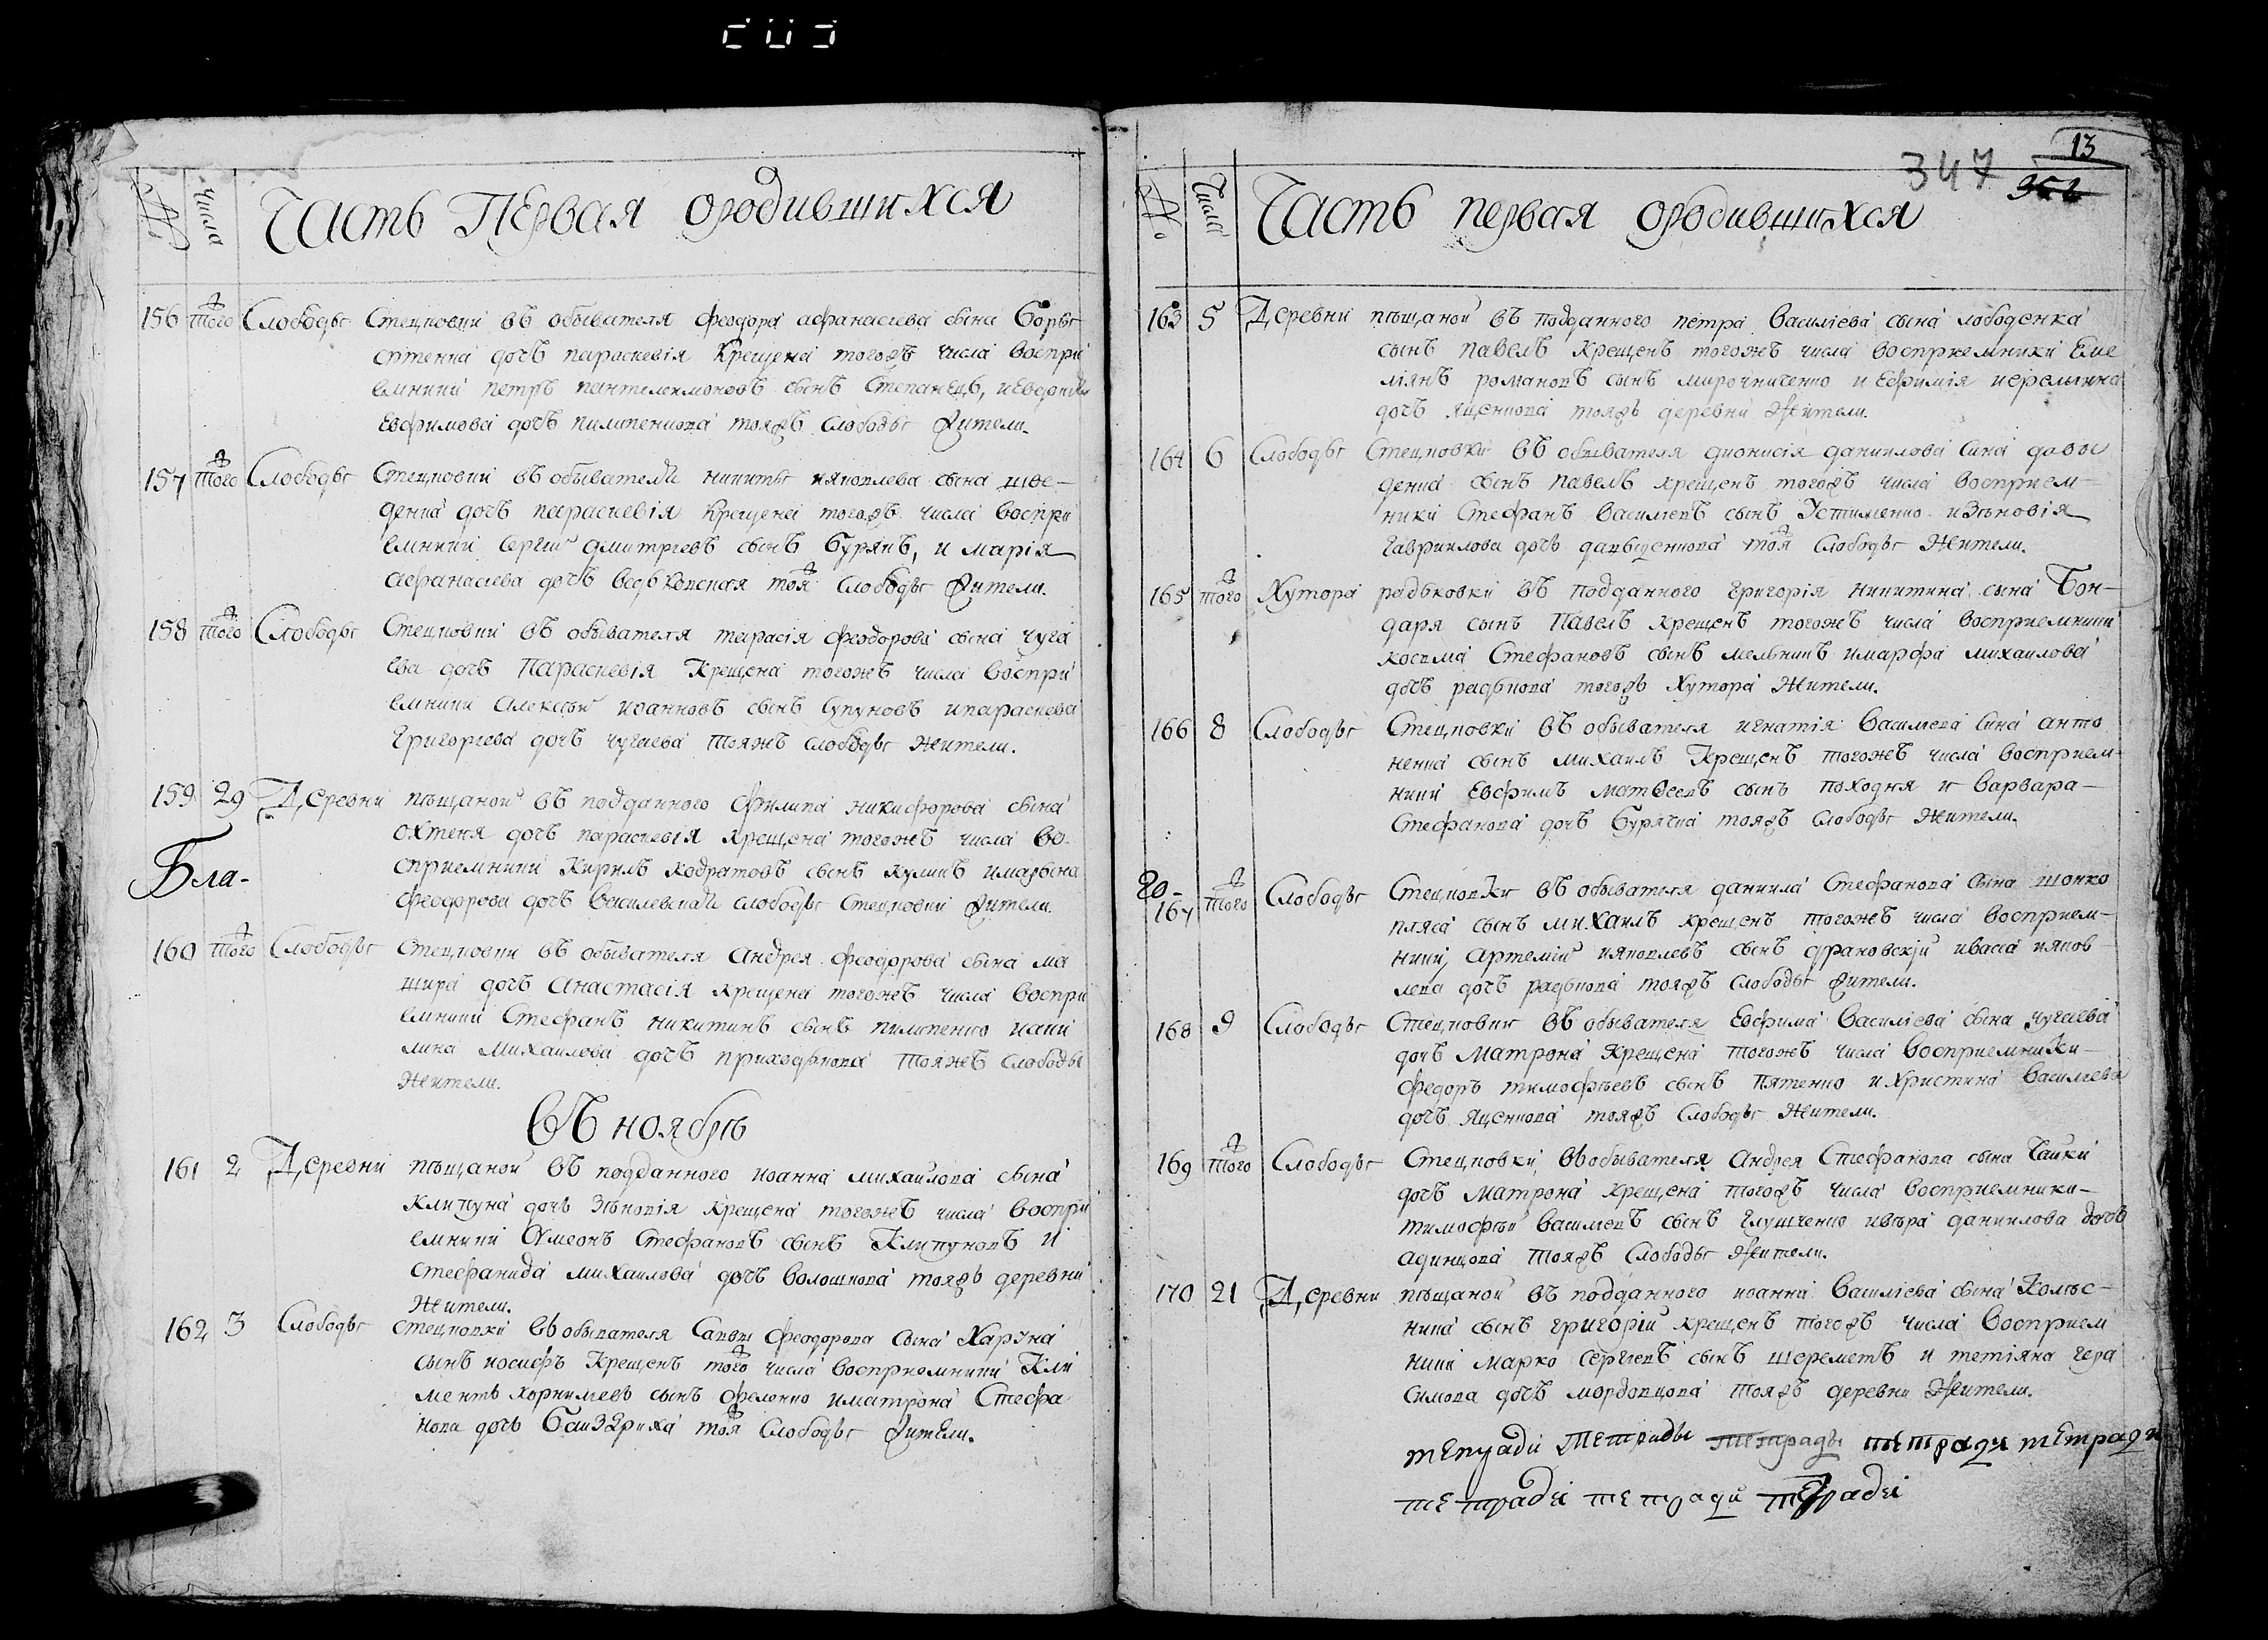 № числа Часть Первая ородившихся
156 тогож Слободы Стецковки въ обывателя Феодора афанасиева сына Боры
спченка дочъ параскевія Крещена тогожъ числа воспри
емники петръ пантелеимоновъ сынъ Степанецъ, иевдокия
Евфимова дочъ пилипенкова тояжъ слободы жители.
157 тогож Слободы Стецковки въ обывателя никиты ияковлева сына шве-
денка дочъ параскевія Крещена тогожъ числа воспри
емники Сергій дмитріевъ сынъ Бурякъ, и марія
афанасиева дочъ тояж слободы жители.
158 тогож Слободы Стецковки въ обывателя тарасія феодорова сына чуга
ева дочъ Параскевія Крещена тогожъ числа воспри
емники Алексѣй иоанновъ сынъ Супуновъ ипараскева
Григориева дочъ чугаева тояжъ слободы жители.
159 29 Деревни пѣщаной въ подданного филипа никифорова сына
охтеня дочъ параскевія крещена тогожъ числа во-
сприемники Кирилъ кодратовъ сынъ куликъ имарьяна
феодорова дочъ Василевская слободы Стецковки жители.
Бла-
160 тогож Слободы Стецковки въ обывателя Андрея феодорова сына ма
шира дочъ Анастасія крещена тогожъ числа воспри
емники Стефанъ никитинъ сынъ пилипенко иаки
лина Михаилова дочъ приходкова тояжъ слободы
жители.
Въ ноябрѣ
161 2 Деревни пѣщаной въ подданного иоанна михаилова сына
клипуна дочъ Зѣновія крещена тогожъ числа воспри
емники Симеонъ Стефановъ сынъ Клипуновъ и
Стефанида михаилова дочъ волошкова тояжъ деревни
жители.
162 3 Слободы Стецковки въ обывателя Саввы феодорова сына Харуна
сынъ иосифъ Крещенъ тогож числа восприемники Кли
ментъ корнилиевъ сынъ феленко иматрона Стефа
нова дочъ Байзериха тояж слободы жители.
13
347
352
№ Числа Часть первая ородившихся
163 5 Деревни пѣщаной въ подданного петра Василіева сына лободенка
сынъ павелъ крещенъ тогожъ числа восприемники Еме
ліянъ романовъ сынъ мирочниченко и Ефимія иеремиина
дочъ яценкова тояжъ деревни жители.
164 6 Слободы Стецковки въ обывателя дионисія даниилова сина давы
денка сынъ павелъ крещенъ тогожъ числа восприем-
ники Стефанъ василиевъ сынъ Устименко изѣновія
Гавриилова дочъ давыденкова тояж слободы жители.
165 тогож Хутора радьковки въ подданного григорія никитина сына Бон-
даря сынъ Павелъ крещенъ тогожъ числа восприемники
косьма Стефановъ сынъ мельникъ имарфа михаилова
дочъ радькова тогожъ хутора жители.
166 8 Слободы Стецковки въ обывателя игнатія василиева сина анто
ненка сынъ михаилъ Крещенъ тогожъ числа восприем-
ники Евфимъ матѳеевъ сынъ походня и варвара-
Стефанова дочъ Бурячка тояжъ слободы жители.
го-
167 тогож Слободы Стецковки въ обывателя даниила Стефанова сына шонко
пляса сынъ михаилъ крещенъ тогожъ числа восприем-
ники, Артемій ияковлевъ сынъ драновскій иваса ияков-
лева дочъ радькова тояжъ слободы жители.
168 9 Слободы Стецковки въ обывателя Евфима Василіева сына чугаева
дочъ Матрона Крещена тогожъ числа восприемники-
Федоръ тимофѣевъ сынъ пятенко и христина Василиева
дочъ яценкова тояжъ слободы жители.
169 тогож Слободы Стецковки въ обывателя Андрея Стефанова сына Чайки
дочъ матрона крещена тогожъ числа восприемники-
тимофѣй василиевъ сынъ глущченко ивѣра даниилова дочъ
адинцова тояжъ слободы жители.
170 21 Деревни пѣщаной въ подданного иоанна василіева сына колѣс-
ника сынъ григорій крещенъ тогожъ числа восприем
ники марко Сергіевъ сынъ шереметъ и тетіяна гера
симова дочъ мордовцова тояжъ деревни жители.
тепради Тетради тетради тетради тетради
тетради тетради тетради